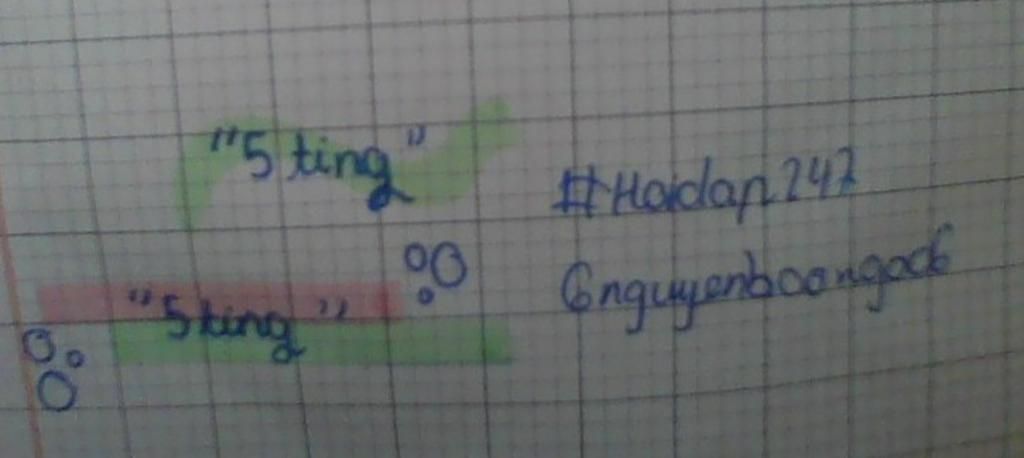 "5 ting"
#Hoidap247
6nguyenbaongoc6
"5 ting"